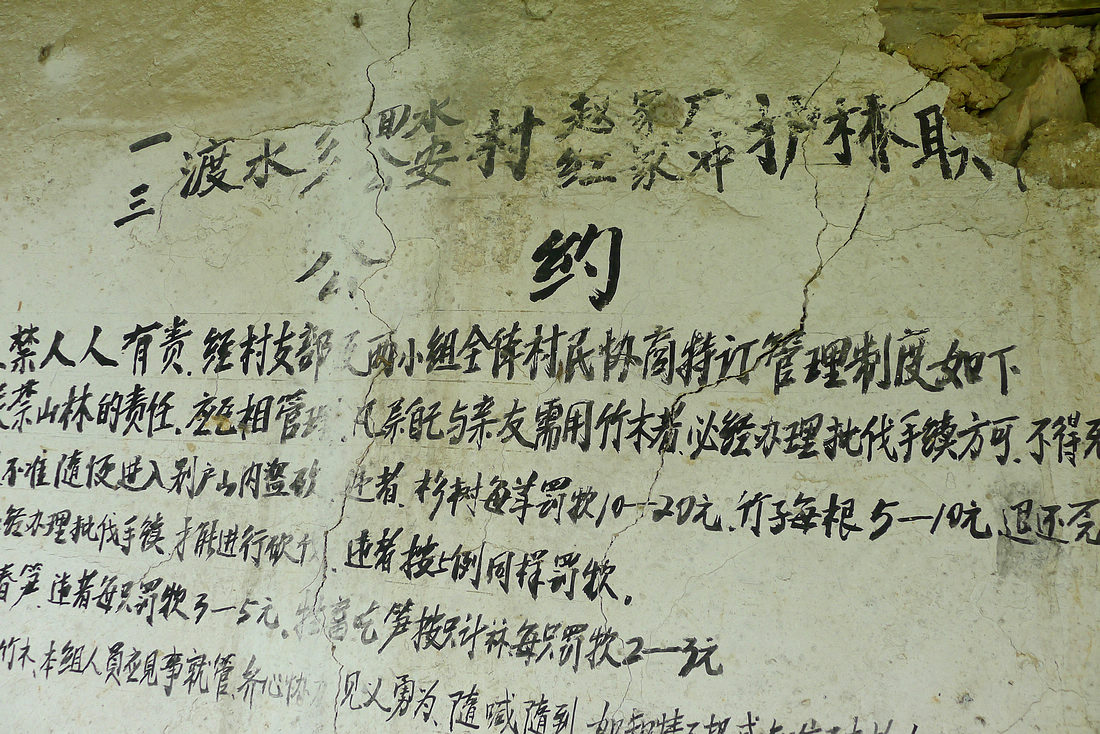 一 三渡水乡 回水 公安 村 赵家厂 红家冲 护林联
公约
禁人人有责.经村支部及两小组全体村民协商特订管理制度如下
禁山林的责任.应互相管理.凡亲自与亲友需用竹木者.必经办理批伐手续方可.不得
不准随便进入别户山内盗砍.违者.杉树每蔸罚款10—20元.竹子每根5—10元.退还
经办理批伐手续.才能进行砍伐.违者按上例同样罚款.
春笋.违者每只罚款3—5元.牲畜吃笋按只计术每只罚款2—3元
竹木.本组人员应见事就管.齐心协力.见义勇为.随喊随到